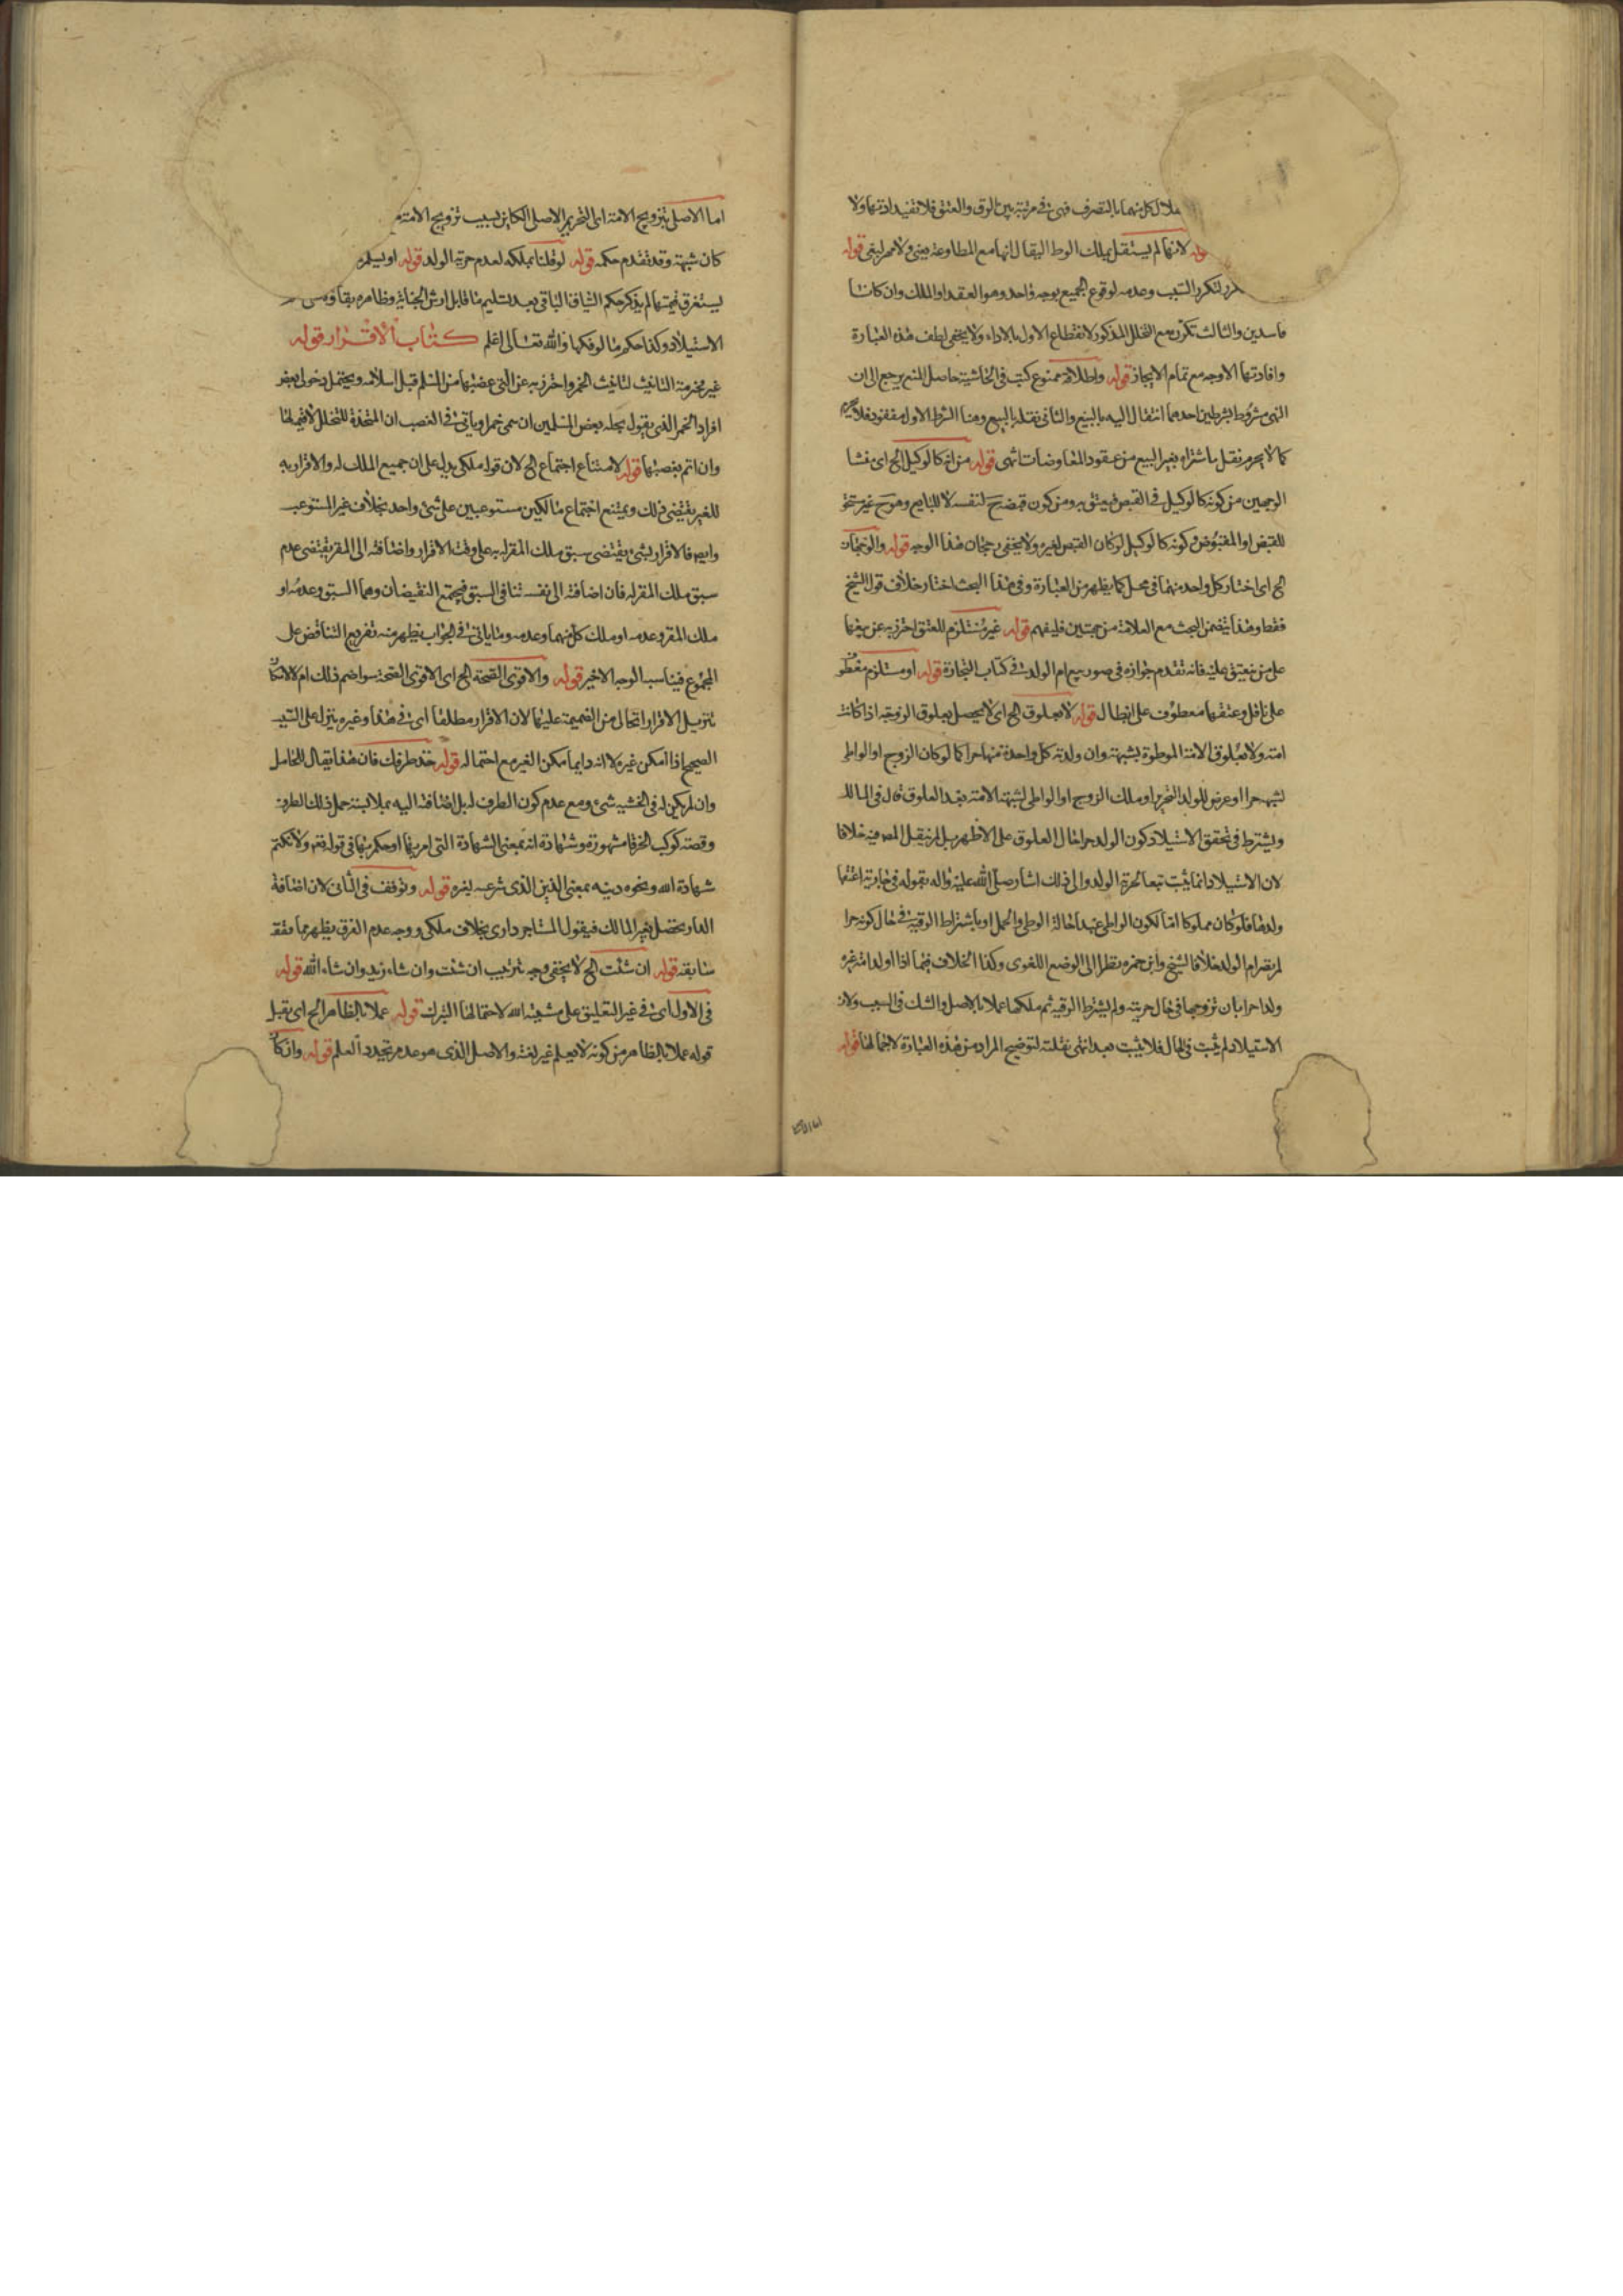 بالتصرف فهي في مرتبة بين الرق والعتق فلا تفيد ولا
لانها لم يستقل بملك الوطء ليقال انها مع المطاوعة بغي ولا مهر لبغي قوله
لتكرر السبب وعدمه لوقوع الجميع بوجه واحد وهو العقد او الملك وان كانا
فاسدين والثالث تكرره مع التخلل المذكور لانقطاع الاول بالاداء ولا يخفى لطف هذه العبارة
وافادتها الاوجه مع تمام الايجاز قوله واطلاقه ممنوع كتب في الحاشية حاصل المنع يرجع الى ان
النهي مشروط بشرطين احدهما انتقال اليه بالبيع والثاني نقله بالبيع وهنا الشرط الاول مفقود فلا يحرم
كما لا يحرم نقل ما شراه بغير البيع من عقود المعاوضات انتهى قوله من انه كالوكيل الخ اي منشا
الوجهين من كونه كالوكيل في القبض ومن كون قبضه ح لنفسه لا للبايع وهو ح غير مستحق
للقبض او المقبوض وكونه كالوكيل لو كان القبض لغيره ولا يخفى رجحان هذا الوجه قوله والوجهان
الخ اي اختار كل واحد منهما في محل كما يظهر من العبارة وفي هذا البحث اختار خلاف قول الشيخ
فقط وهذا يتضمن البحث مع العلامة من جهتين فليفهم قوله غير مستلزم للعتق احترز به عن بيعها
على من ينعتق عليه فانه تقدم جوازه في صور بيع ام الولد في كتاب التجارة قوله او مستلزم معطوف
على ناقل وعتقها معطوف على ابطال قوله لا بعلوق الخ اي لا يحصل بعلوق الزوجة اذا كانت
امته ولا بعلوق الامة الموطوة بشبهة وان ولدته كل واحدة منهما حرا كما لو كان الزوج او الواطي
لشبهة حرا او عرض للولد التحرير او ملك الزوج او الواطي لشبهة الامة بعد العلوق قال في المسالك
ويشترط في تحقق الاستيلاد كون الولد حرا حال العلوق على الاظهر بل لم ينقل المص فيه خلافا
لان الاستيلاد انما يثبت تبعا لحرية الولد والى ذلك اشار صلى الله عليه واله بقوله في مارية اعتقها
ولدها فلو كان مملوكا اما لكون الواطي عبدا حالة الوطي والحمل او باشتراط الرقية في حال كونه حرا
لم تصر ام الولد خلافا للشيخ وابن حمزه نظرا الى الوضع اللغوي وكذا الخلاف فيما اذا اولد امة غيره
ولدا حرا بان تزوجها في حال حريته ولم يشترط الرقية ثم ملكها عملا بالاصل والشك في السبب ولان
الاستيلاد لم يثبت في الحال فلا يثبت بعد انتهى نقلته لتوضيح المراد من هذه العبارة لاجمالها قوله
اما الاصل
اما الاصلي بتزويج الامة اي التحرير الاصلي الكاين بسبب تزويج الامة
كان شبهة وقد تقدم حكمه قوله لو قلنا بملكه لعدم حرية الولد قوله او يسلم
ليستغرق قيمتها لم يذكر حكم الباقي بعد تسليم ما قابل ارش الجناية وظاهره بقاؤه
الاستيلاد وكذا حكم ما لو فكها والله تعالى اعلم كتاب الاقرار قوله
غير محترمة التانيث لتانيث الخمر واحترز به عن التي غصبها من المسلم قبل اسلامه ويحتمل دخول بعض
افراد الخمر الذي يقول بحله بعض المسلمين ان سمي خمرا وياتي في الغصب ان المتخذة للتخلل لا قيمة لها
وان اثم بغصبها قوله لامتناع اجتماع الخ لان قوله ملكي يدل على ان جميع الملك له والاقرار به
للغير يقتضي ذلك ويمتنع اجتماع مالكين مستوعبين على شيء واحد بخلاف غير المستوعب
وايضا فالاقرار بشيء يقتضي سبق ملك المقر له به على وقت الاقرار واضافته الى المقر يقتضي عدم
سبق ملك المقر له فان اضافته الى نفسه تنافي السبق فيجتمع النقيضان وهما السبق وعدمه او
ملك المقر وعدمه او ملك كل منهما وعدمه وما ياتي في الجواب يظهر منه تفريع التناقض على
المجموع فيناسب الوجه الاخير قوله والاقوى الصحة الخ اي الاقوى الصحة سواء ضم ذلك ام لا لامكان
تنزيل الاقرار الخالي من الضميمة عليها لان الاقرار مطلقا اي في هذا وغيره ينزل على السبب
الصحيح اذا امكن غيره لا انه دايما ممكن الغير مع احتماله قوله خذ طرفك فان هذا يقال للحامل
وان لم يكن له في الخشبة شيء ومع عدم كون الطرف له بل اضافته اليه بملابسة حمل ذلك الطرف
وقصة كوكب الخرقا مشهورة وشهادة الله بمعنى الشهادة التي امر بها او حكم بها في قوله تعالى ولا نكتم
شهادة الله ونحوه دينه بمعنى الدين الذي شرعه لغيره قوله وتوقف في الثاني لان اضافة
الدار يحصل بغير المالك فيقول المستاجر داري بخلاف ملكي ووجه عدم الفرق يظهر مما تقدم
سابقه قوله ان شئت الخ لا يخفى وجه ترتيب ان شئت وان شاء زيد وان شاء الله قوله
في الاول اي في غير التعليق على مشية الله لاحتمالها التبرك قوله عملا بالظاهر الخ اي تقبل
قوله عملا بالظاهر من كونه لا يعلم غير لغته والاصل الذي هو عدم تجدد العلم قوله وان كان